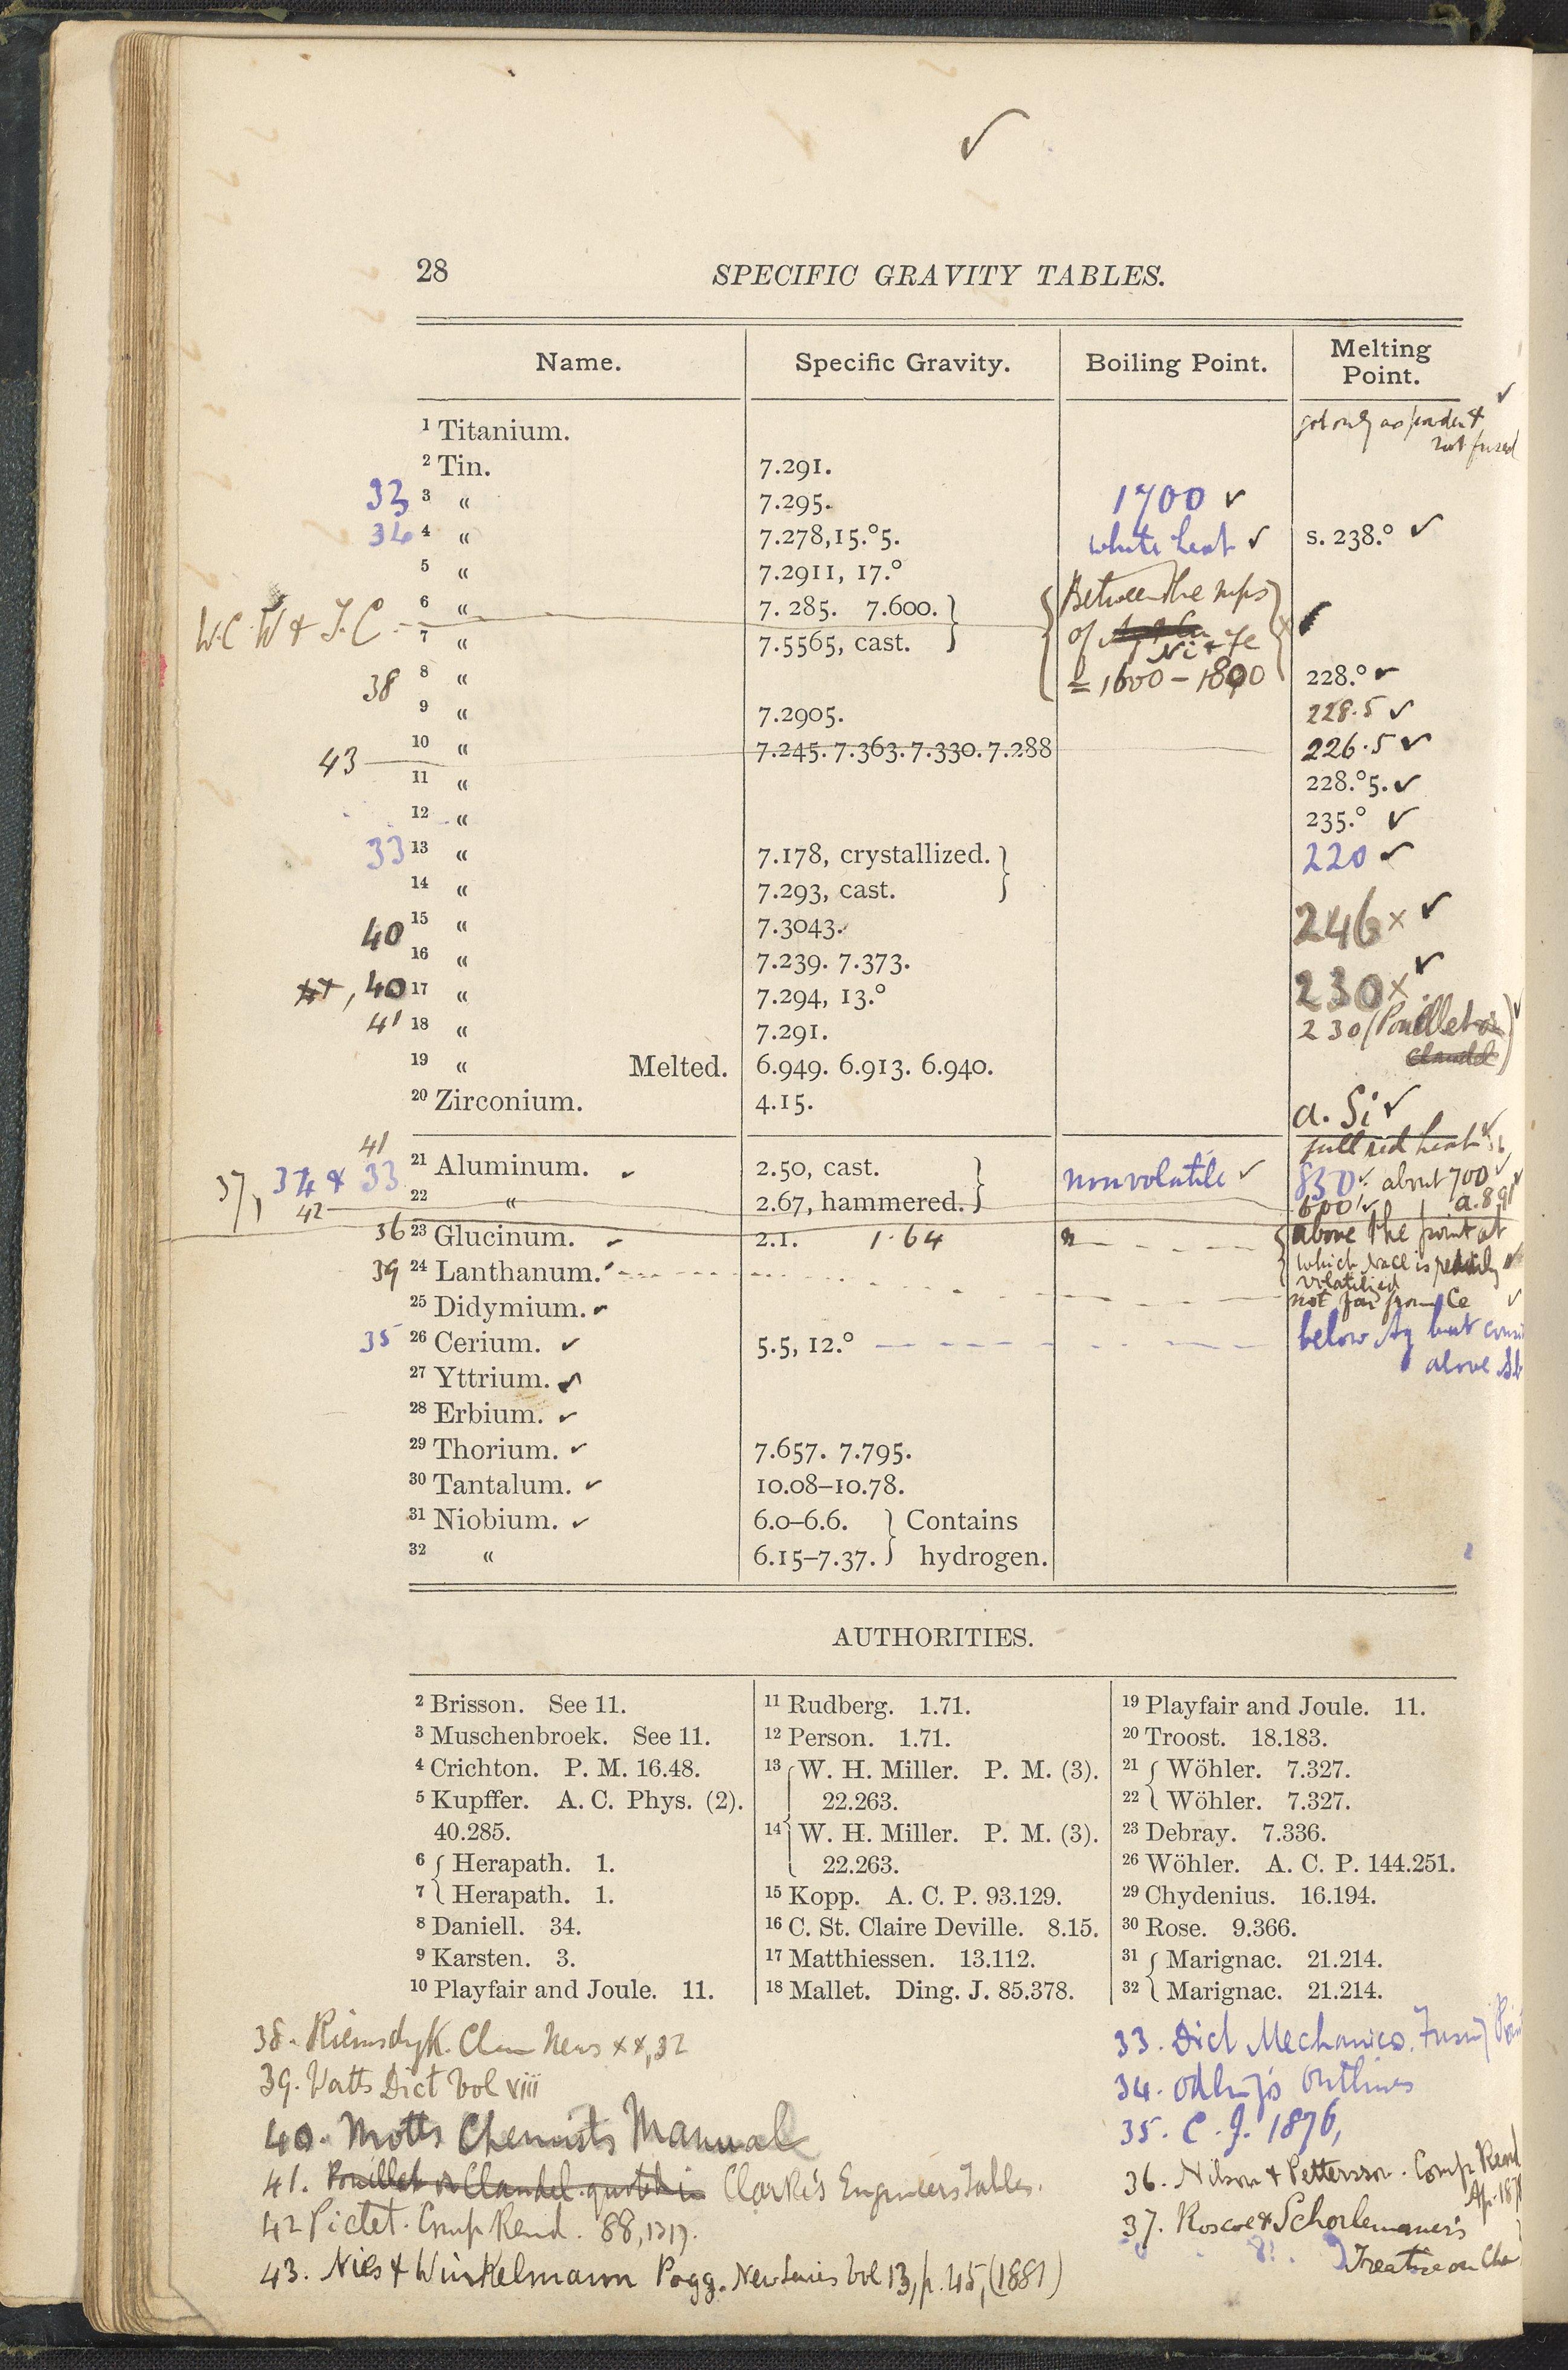 ✓
28 SPECIFIC GRAVITY TABLES.
Name. Specific Gravity. Boiling Point. Melting Point.
1 Titanium. got only as powder & not fused ✓
2 Tin. 7.291.
33 3 “ 7.295. 1700 ✓
34 4 “ 7.278,15.°5. white heat ✓ s. 238.° ✓
5 “ 7.2911, 17.°
W.C. W & T.C. 6 “ 7.285. 7.600. } { Between the mps
7 “ 7.5565, cast. of Ni & Fe
38 8 “ = 1600 – 1800 228.° ✓
9 “ 7.2905. 228.5 ✓
43 10 “ 7.245. 7.363. 7.330. 7.288 226.5 ✓
11 “ 228.°5. ✓
12 “ 235.° ✓
33 13 “ 7.178, crystallized. } 220 ✓
14 “ 7.293, cast.
40 15 “ 7.3043. 246 x ✓
16 “ 7.239. 7.373.
40 17 “ 7.294, 13.° 230 x ✓
41 18 “ 7.291. 230 (Pouillet or Claudel) ✓
19 “ Melted. 6.949. 6.913. 6.940.
20 Zirconium. 4.15. a. Si ✓
41 full red heat ✓
37, 34 & 33 21 Aluminum. ✓ 2.50, cast. } nonvolatile ✓ 830 ✓ about 700 ✓
42 22 “ 2.67, hammered. 600 ✓ a. 891
36 23 Glucinum. ✓ 2.1. 1.64 above the point at
39 24 Lanthanum. ✓ which NaCl is readily volatilized
25 Didymium. ✓ not far from Ce ✓
35 26 Cerium. ✓ 5.5, 12.° below Ag but
above Sb
27 Yttrium. ✓
28 Erbium. ✓
29 Thorium. ✓ 7.657. 7.795.
30 Tantalum. ✓ 10.08–10.78.
31 Niobium. ✓ 6.0–6.6. } Contains
32 “ 6.15–7.37. hydrogen.
AUTHORITIES.
2 Brisson. See 11.
3 Muschenbroek. See 11.
4 Crichton. P. M. 16.48.
5 Kupffer. A. C. Phys. (2).
40.285.
6 { Herapath. 1.
7 { Herapath. 1.
8 Daniell. 34.
9 Karsten. 3.
10 Playfair and Joule. 11.
11 Rudberg. 1.71.
12 Person. 1.71.
13 { W. H. Miller. P. M. (3).
22.263.
14 { W. H. Miller. P. M. (3).
22.263.
15 Kopp. A. C. P. 93.129.
16 C. St. Claire Deville. 8.15.
17 Matthiessen. 13.112.
18 Mallet. Ding. J. 85.378.
19 Playfair and Joule. 11.
20 Troost. 18.183.
21 { Wöhler. 7.327.
22 { Wöhler. 7.327.
23 Debray. 7.336.
26 Wöhler. A. C. P. 144.251.
29 Chydenius. 16.194.
30 Rose. 9.366.
31 { Marignac. 21.214.
32 { Marignac. 21.214.
38. Riemsdyk. Chem News xx, 32
39. Watts Dict Vol viii
40. Motts Chemists Manual
41. Pouillet or Claudel quoted in Clarke's Engineers Tables.
42 Pictet. Comp Rend. 88, 1317.
43. Nies & Winkelmann Pogg. New Series Vol 13, p. 45, (1881)
33. Dict Mechanics. Fusing
34. Odling's Outlines
35. C. J. 1876,
36. Nilson & Pettersson. Comp Rend
Ap. 1878
37. Roscoe & Schorlemmer's
Treatise on Che